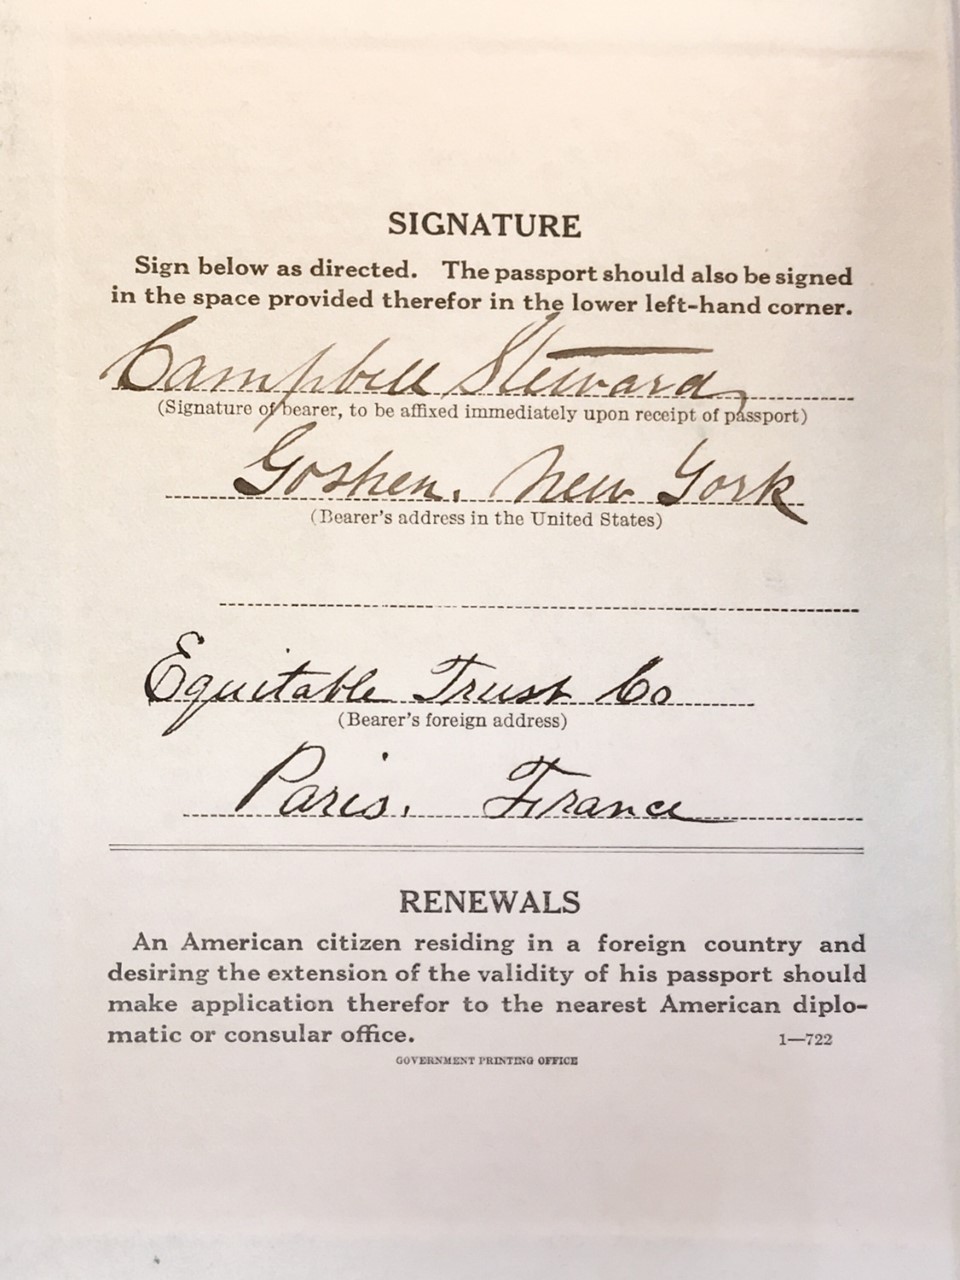 SIGNATURE
Sign below as directed. The passport should also be signed
in the space provided therefor in the lower left-hand corner.
Campbell Steward
(Signature of bearer, to be affixed immediately upon receipt of passport)
Goshen, New York
(Bearer's address in the United States)
Equitable Trust Co
(Bearer's foreign address)
Paris, France
RENEWALS
An American citizen residing in a foreign country and
desiring the extension of the validity of his passport should
make application therefor to the nearest American diplo-
matic or consular office.
1—722
GOVERNMENT PRINTING OFFICE